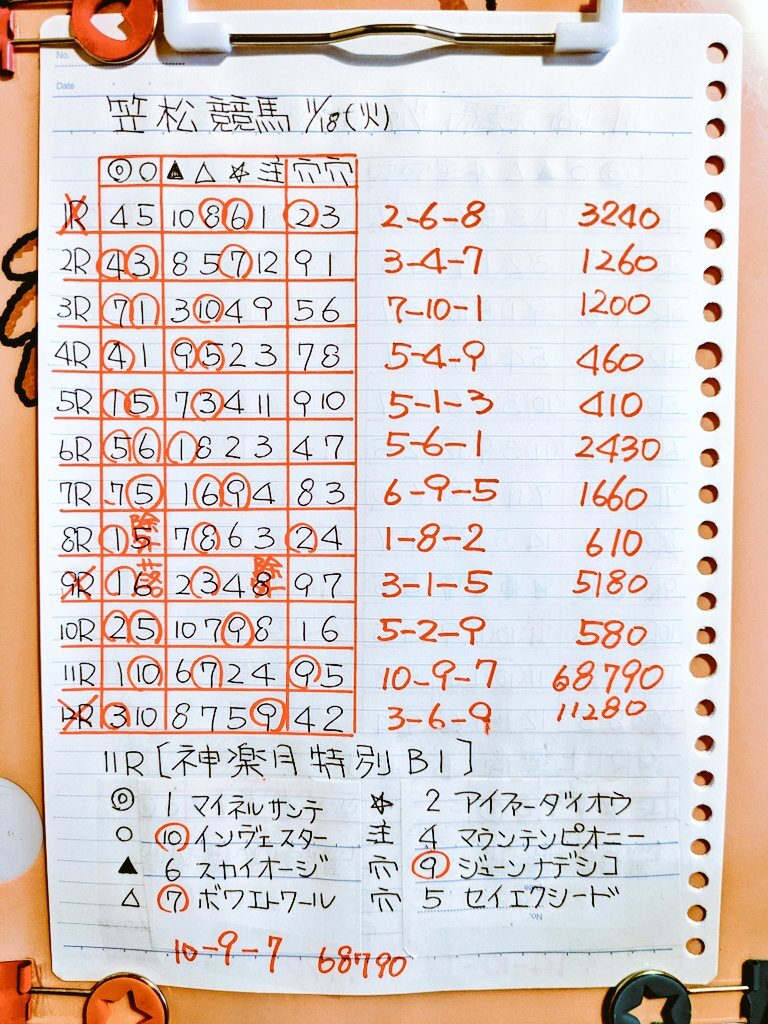 No.
Date
笠松競馬 11/18(火)
◎○▲△☆注穴穴
1R 4 5 10 8 6 1 2 3 2-6-8 3240
2R 4 3 8 5 7 12 9 1 3-4-7 1260
3R 7 1 3 10 4 9 5 6 7-10-1 1200
4R 4 1 9 5 2 3 7 8 5-4-9 460
5R 1 5 7 3 4 11 9 10 5-1-3 410
6R 5 6 1 8 2 3 4 7 5-6-1 2430
7R 7 5 1 6 9 4 8 3 6-9-5 1660
除外
8R 1 5 7 8 6 3 2 4 1-8-2 610
落 除外
9R 1 6 2 3 4 8 9 7 3-1-5 5180
10R 2 5 10 7 9 8 1 6 5-2-9 580
11R 1 10 6 7 2 4 9 5 10-9-7 68790
12R 3 10 8 7 5 9 4 2 3-6-9 11280
11R[神楽月特別B1]
◎ 1 マイネルサンテ ☆ 2 アイファーダイオウ
○ 10 インヴェスター 注 4 マウンテンピオニー
▲ 6 スカイオージ 穴 9 ジューンナデシコ
△ 7 ボワエトワール 穴 5 セイエクシード
No.
10-9-7 68790